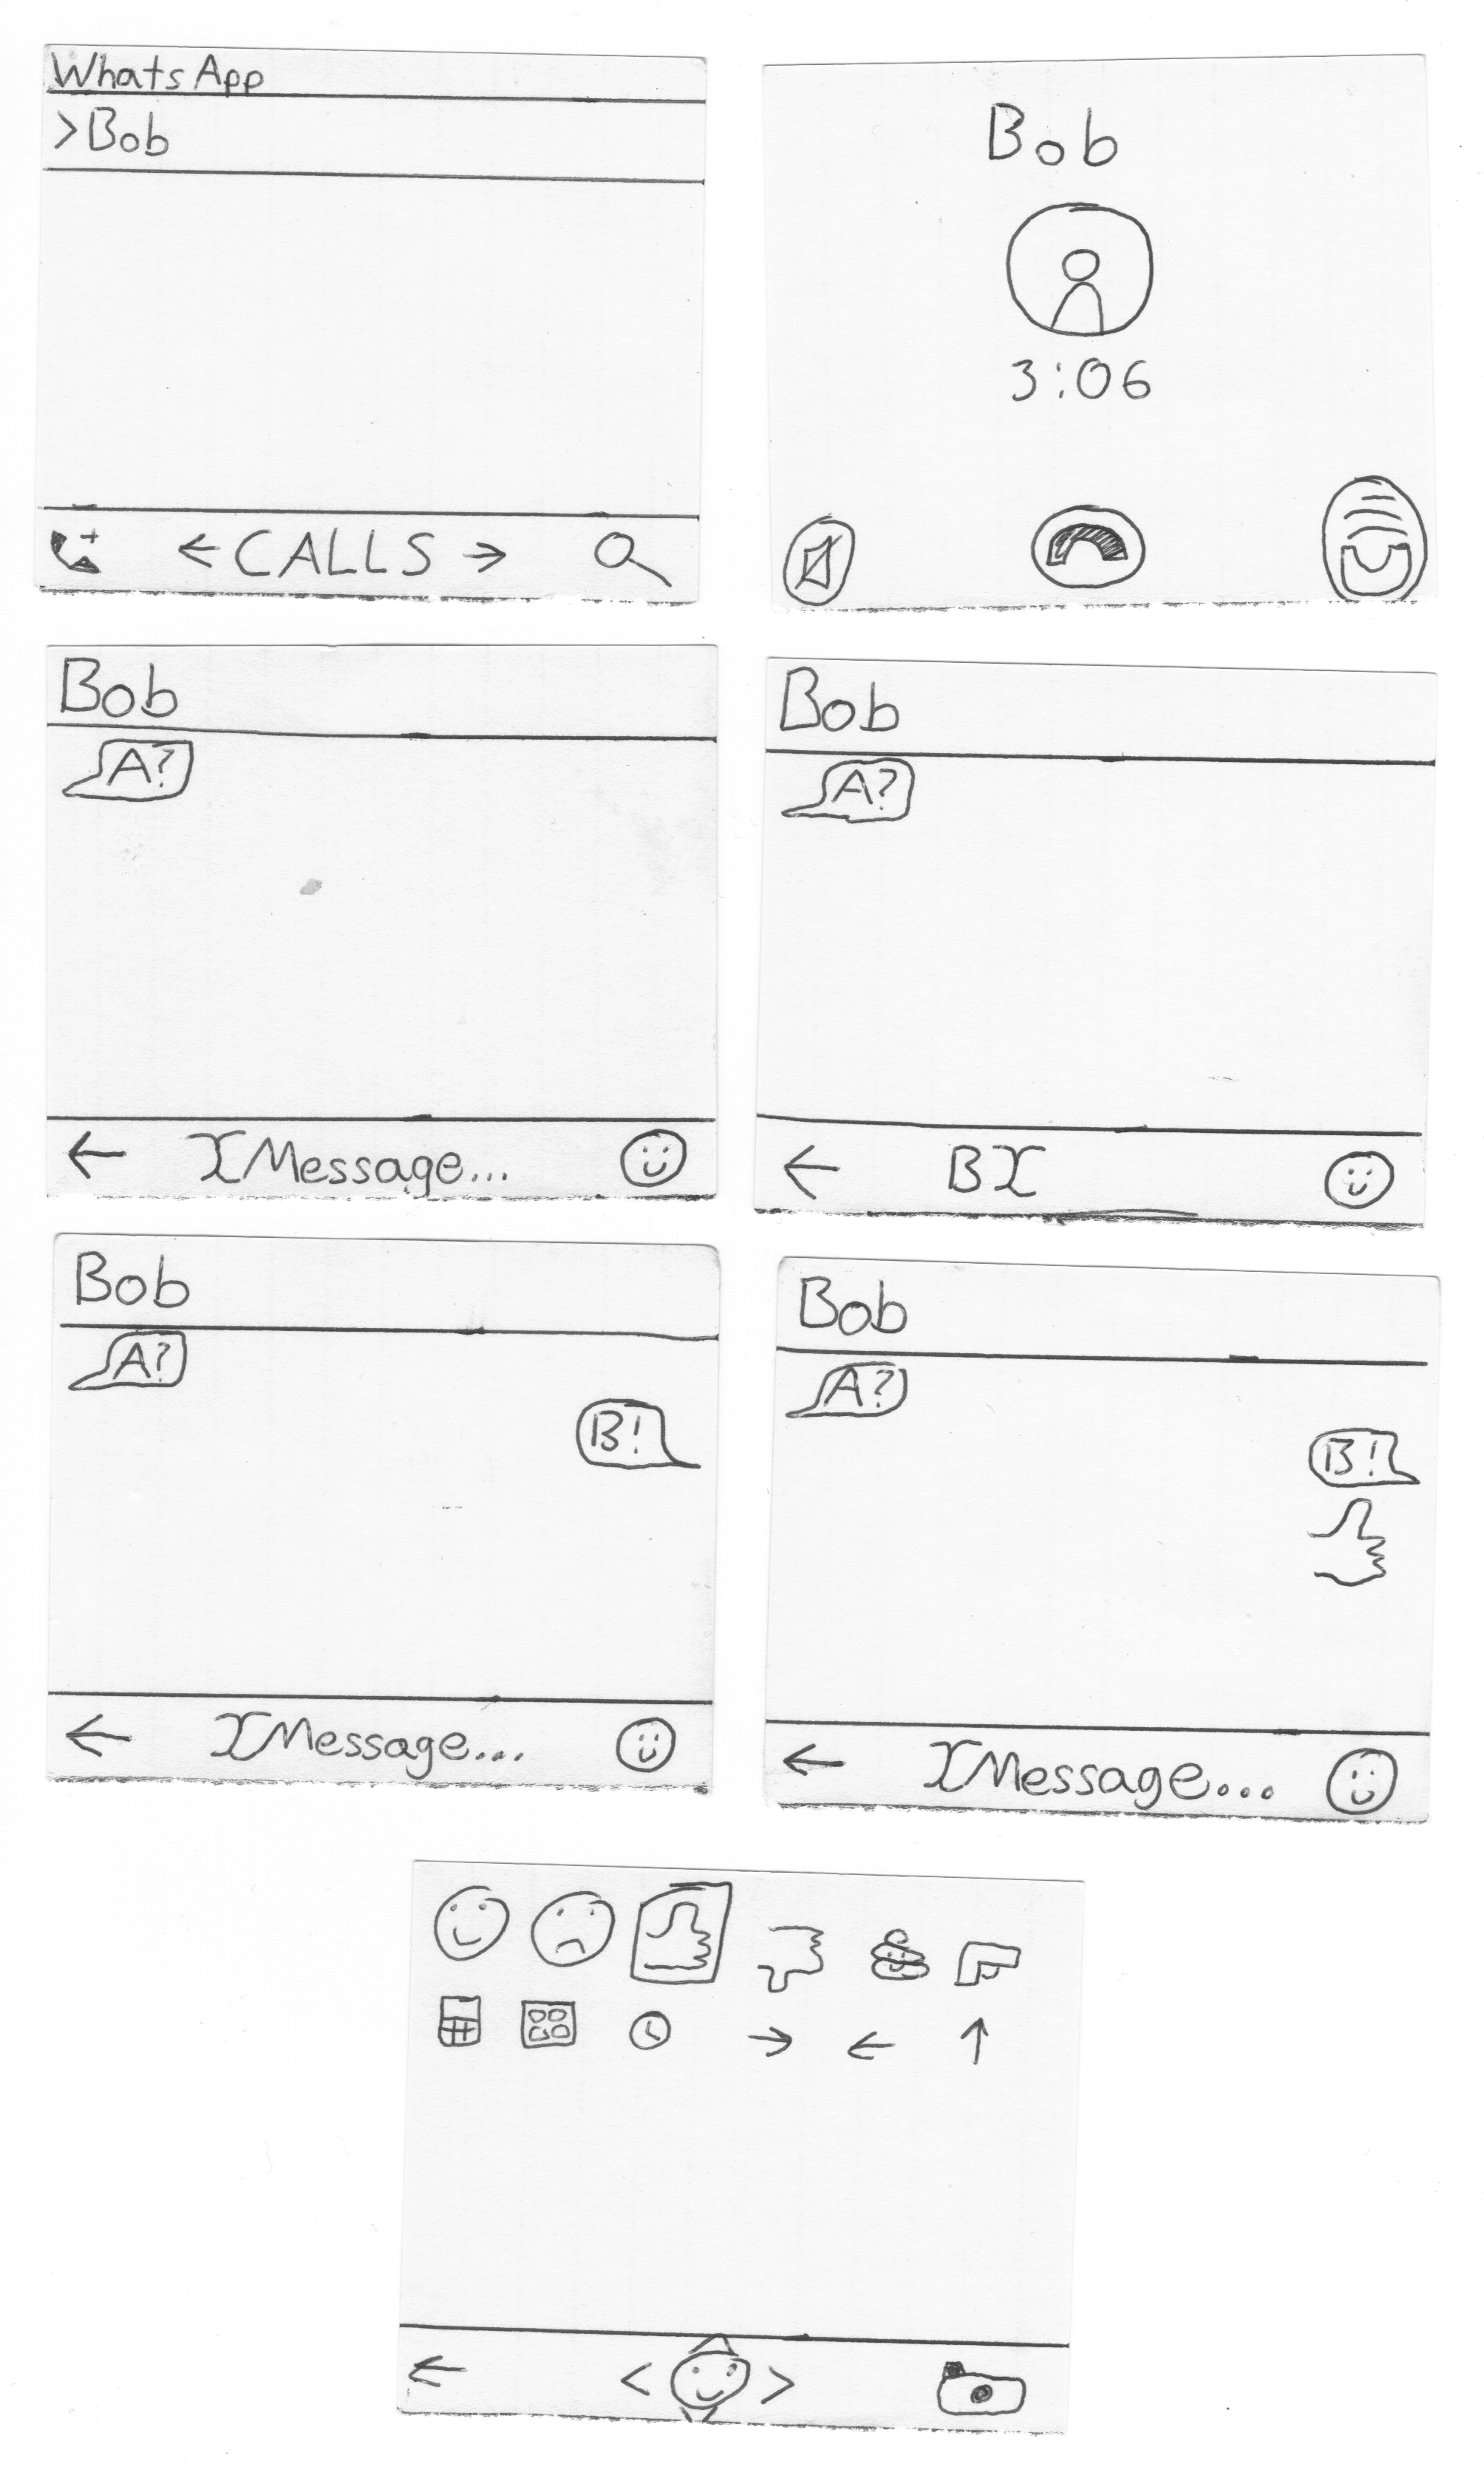 WhatsApp
>Bob
← CALLS →
Bob
3:06
Bob
A?
← Message...
Bob
A?
← B
Bob
A?
B!
← Message...
Bob
A?
B!
← Message...
→ ← ↑
← < >